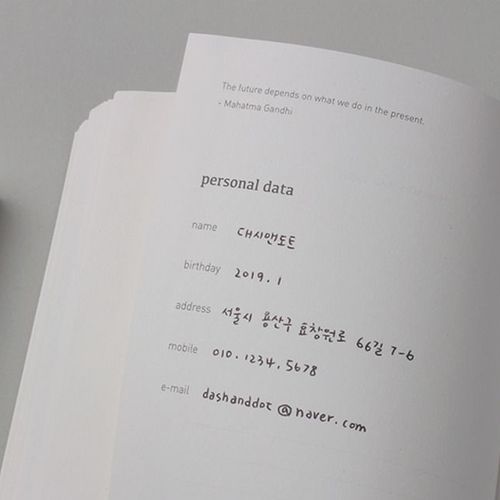 The future depends on what we do in the present.
- Mahatma Gandhi
personal data
name 대시앤도트
birthday 2019. 1
address 서울시 용산구 효창원로 66길 7-6
mobile 010. 1234. 5678
e-mail dashanddot@naver.com